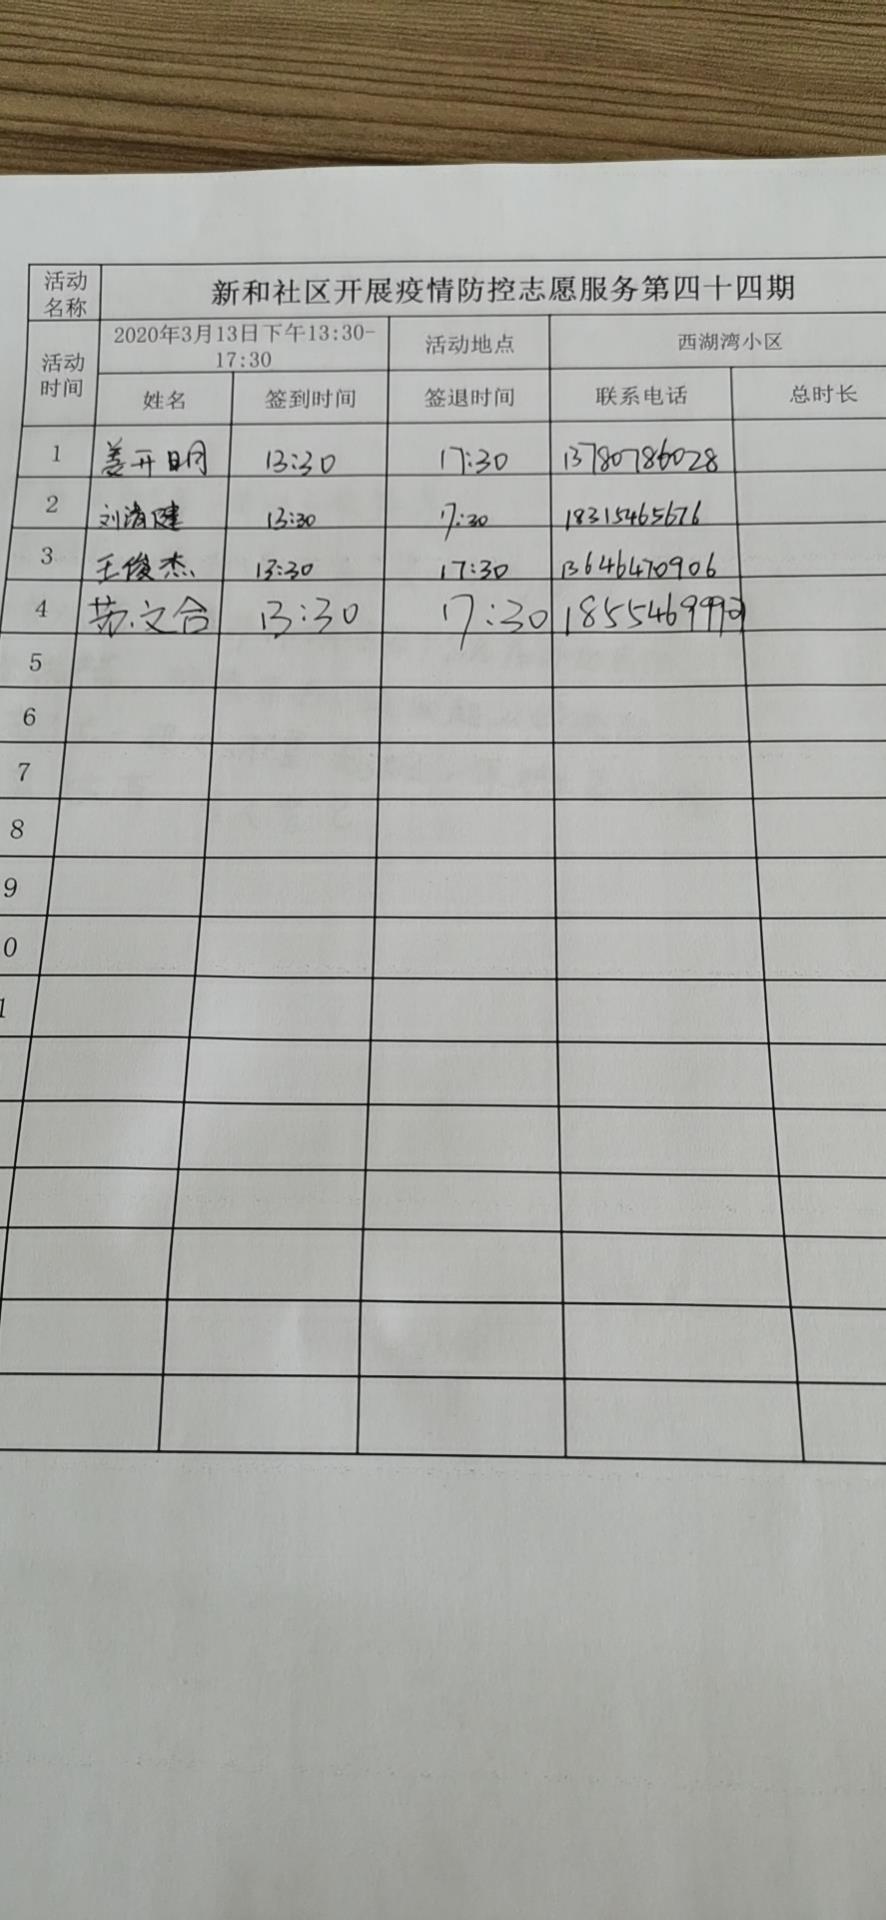 活动名称 新和社区开展疫情防控志愿服务第四十四期
活动时间 2020年3月13日下午13:30-17:30 活动地点 西湖湾小区
姓名 签到时间 签退时间 联系电话 总时长
1 姜开明 13:30 17:30 13780786028
2 刘清健 13:30 17:30 18315465676
3 王俊杰 13:30 17:30 13646470906
4 苏文合 13:30 17:30
5
6
7
8
9
0
1